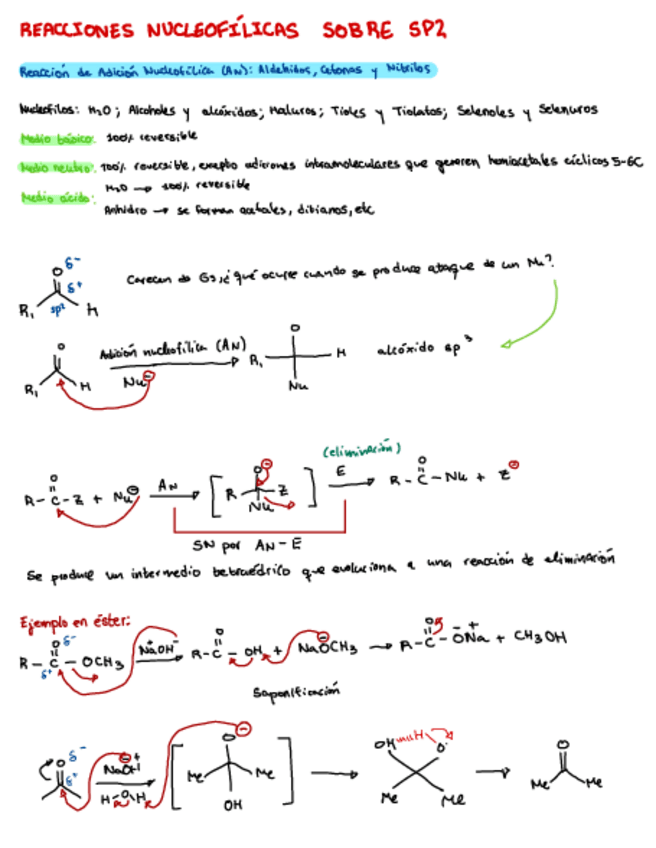 REACCIONES NUCLEOFÍLICAS SOBRE SP2
Reacción de Adición Nucleofílica (AN): Aldehidos, Cetonas y Nitrilos
Nucleofilos: H₂O; Alcoholes y alcóxidos; Haluros; Tioles y Tiolatos; Selenoles y Selenuros
Medio básico: 100% reversible
Medio neutro: 100% reversible, excepto adiciones intramoleculares que generen hemiacetales cíclicos 5-6C
Medio ácido: H₂O → 100% reversible
Anhidro → se forman acetales, ditianos, etc
O δ⁻
δ⁺
R₁ sp² H
Carecen de GS, ¿qué ocurre cuando se produce ataque de un Nu?
O
R₁ H
Adición nucleofílica (AN)
Nu⊖
O
R₁ H
Nu
alcóxido sp³
(eliminación)
R-C-Z + Nu⊖ AN [R O⊖ Z Nu] E R-C-Nu + Z⊖
SN por AN-E
Se produce un intermedio tetraédrico que evoluciona a una reacción de eliminación
Ejemplo en éster:
O δ⁻
R-C-OCH₃ δ⁺ NaOH R-C-OH + NaOCH₃ → R-C-ONa + CH₃OH
Saponificación
O δ⁻
δ⁺
NaOH
H-O-H
O⊖
Me Me
OH
OH H O
Me Me
O
Me Me